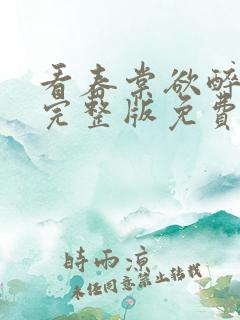 看春棠欲醉
完整版免費
時雨涼
未经同意禁止转载